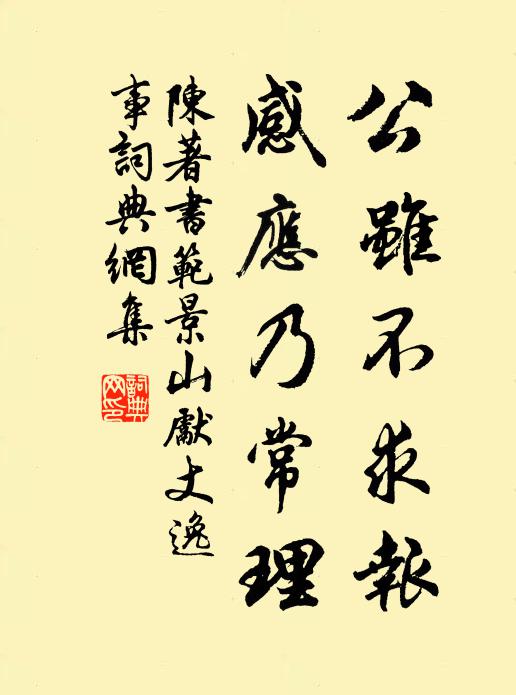 公雖不求報
感應乃常理
陳著書範景山獻丈逸
事詞典網集
詞典網印